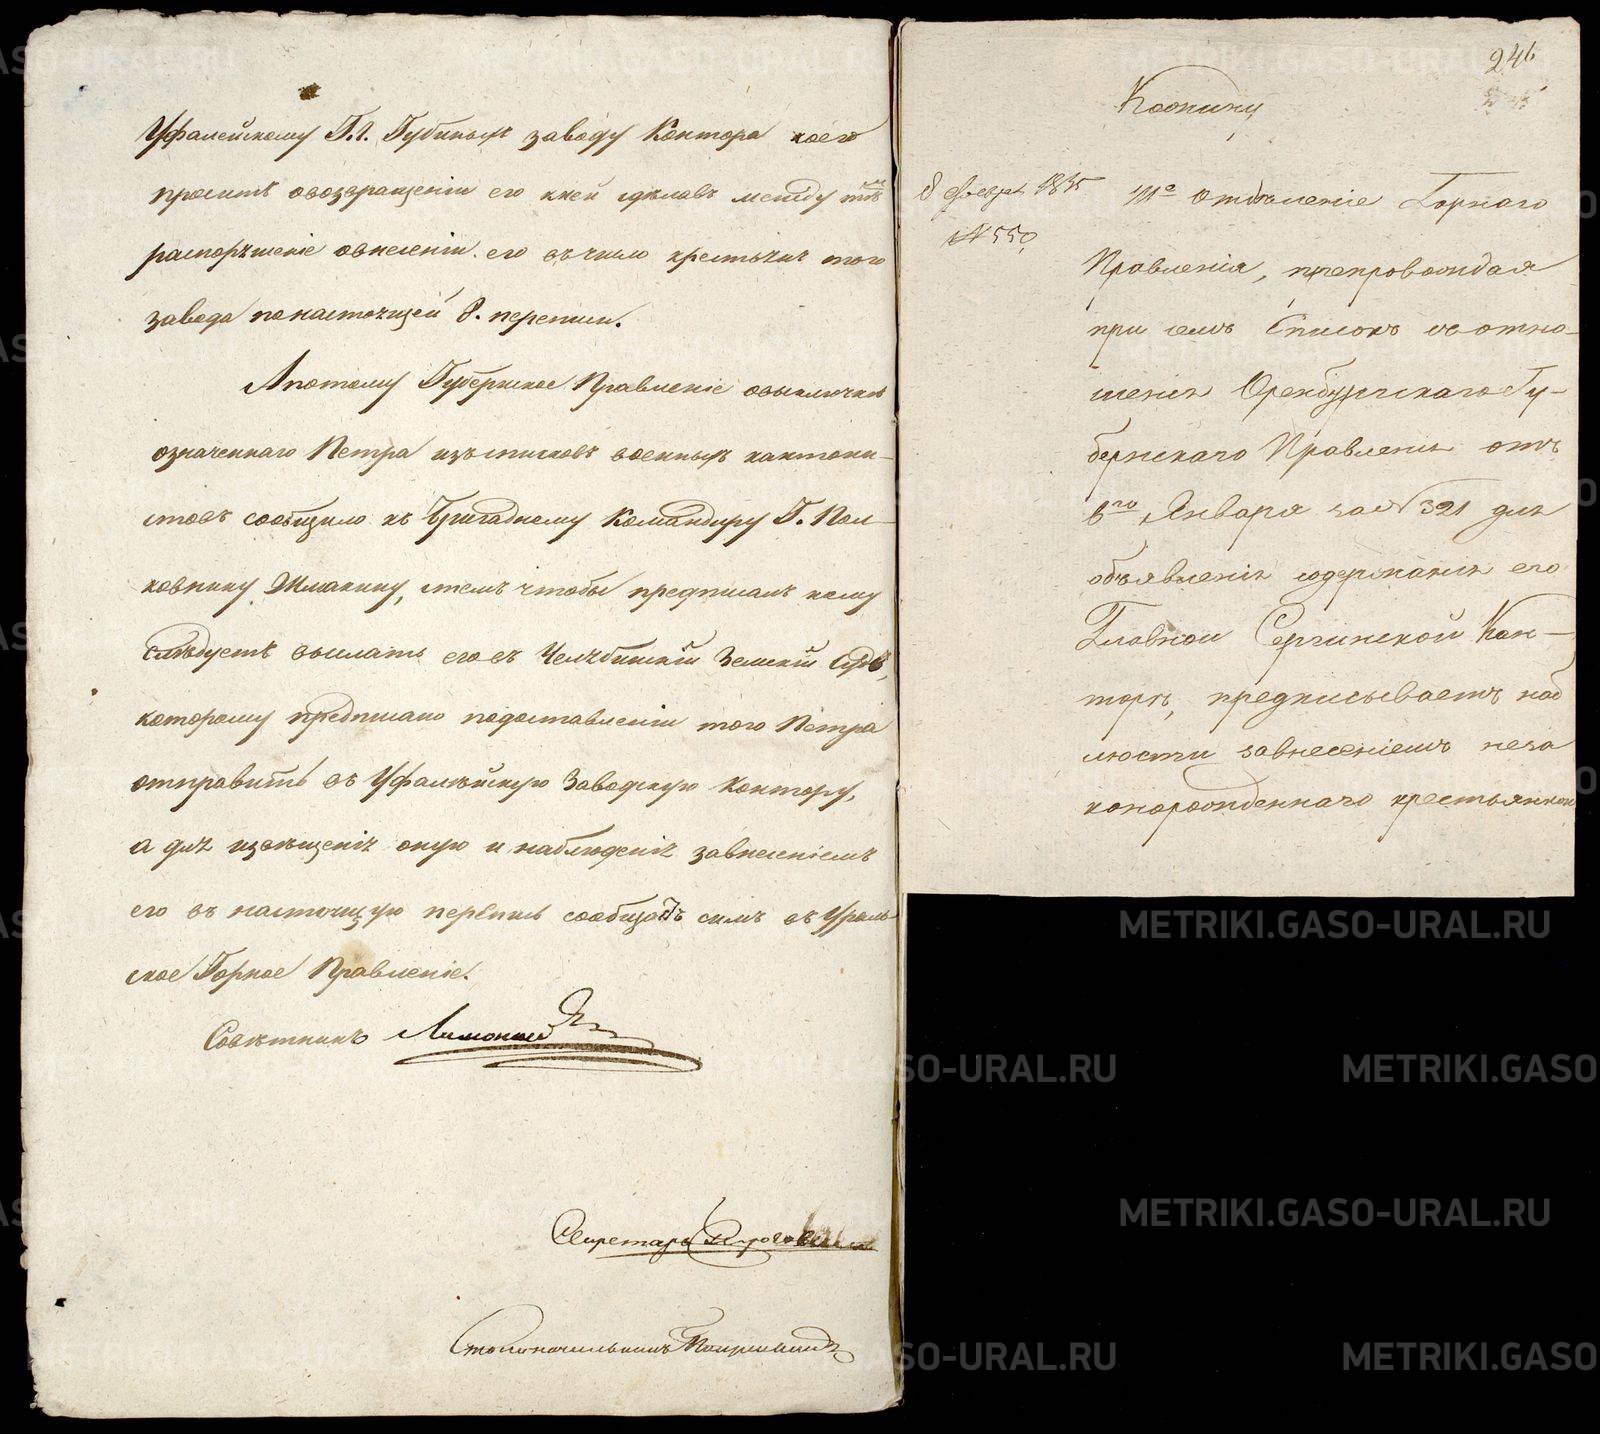 Уфалейскому Г.Г. Губиныхъ заводу Контора коего
проситъ овозвращеніи его кней сдѣлавъ между тѣмъ
распоряженіе овнесеніи его въ число крестьянъ того
завода понастоящей 8. переписи.
Апотому Губернское Правленіе овыключкѣ
означеннаго Петра изъ списковъ военныхъ кантони-
стовъ сообщило къ Бригадному Командиру Г. Пол-
ковнику Шмакину, стемъ чтобы предписалъ кому
слѣдуетъ выслать его въ Челябинскій Земскій Судъ,
которому предписано подоставленіи того Петра
отправить въ Уфалейскую Заводскую Контору,
а для извѣщенія оную и наблюденія завнесеніемъ
его въ настоящую перепись сообщаетъ симъ въ Ураль-
ское Горное Правленіе.
Совѣтникъ
Секретарь
Столоначальникъ
246
Копнину
8 Февраля 1835
№ 550
1е Отдѣленіе Горнаго
Правленія, препровождая
при семъ Списокъ съ отно-
шенія Оренбургскаго Гу-
бернскаго Правленія отъ
8го Января за № 321 для
объявленія содержанія его
Главной Сергинской Кон-
торѣ, предписываетъ наб
люсти завнесеніемъ неза
коннорожденнаго крестьянкою
METRIKI.GASO-URAL.RU